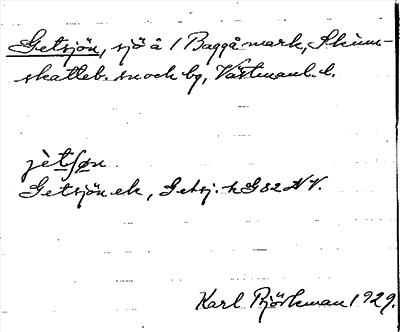 Getsjön, sjö å 1 Baggå mark, Skinn-
skatteb. sn och bg, Västmanl. l.
jètʃøn
Getsjön ek, Getsj. h G 82 NV.
Karl Björkman 1929.